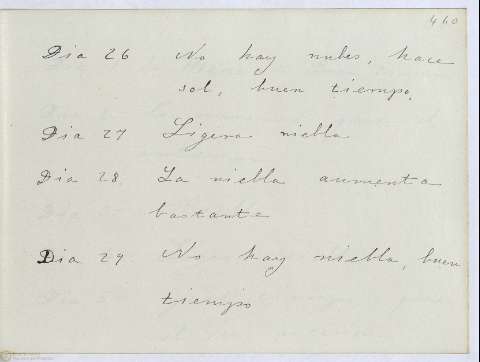 460
Dia 26 No hay nubes, hace
sol, buen tiempo.
Dia 27 Ligera niebla
Dia 28. La niebla aumenta
bastante
Dia 29. No hay niebla, buen
tiempo